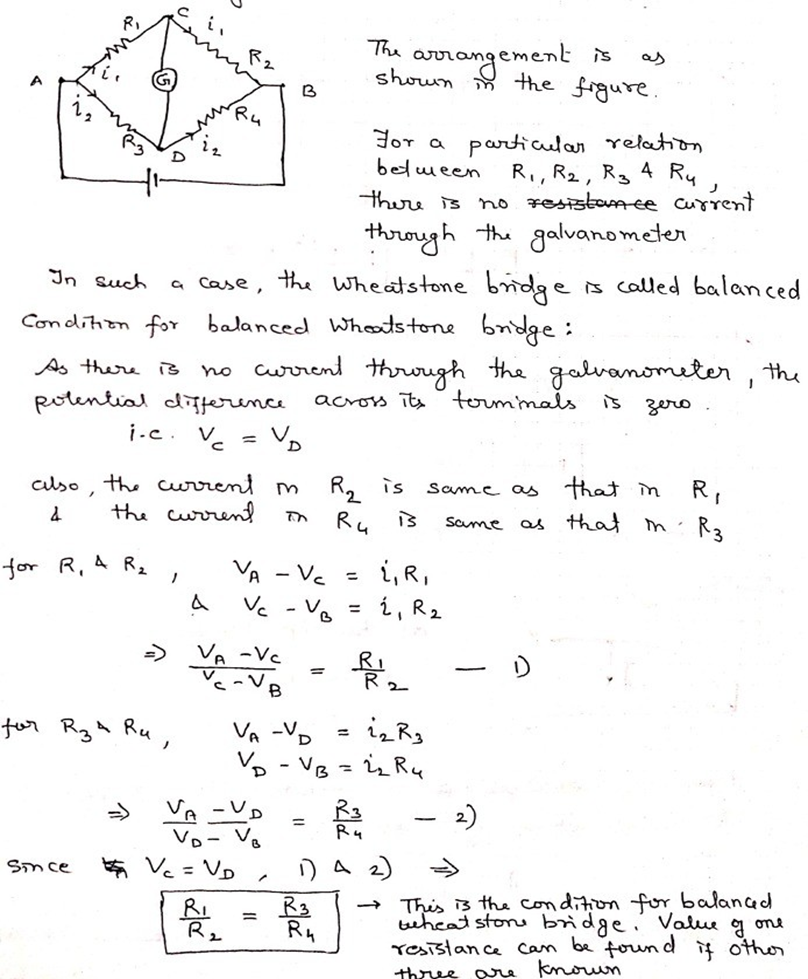 C
R1 i1
R2
A i1 G B
i2 R4
R3 D i2
The arrangement is as
shown in the figure.
For a particular relation
between R1, R2, R3 & R4,
there is no resistance current
through the galvanometer
In such a case, the Wheatstone bridge is called balanced
Condition for balanced Wheatstone bridge:
As there is no current through the galvanometer, the
potential difference across its terminals is zero.
i.e. VC = VD
also, the current in R2 is same as that in R1
& the current in R4 is same as that in R3
for R1 & R2, VA - VC = i1R1
& VC - VB = i1R2
⇒ VA - VC / VC - VB = R1 / R2 — 1)
for R3 & R4, VA - VD = i2R3
VD - VB = i2R4
⇒ VA - VD / VD - VB = R3 / R4 — 2)
Since VC = VD, 1) & 2) ⇒
R1 / R2 = R3 / R4 → This is the condition for balanced
wheatstone bridge. Value of one
resistance can be found if other
three are known